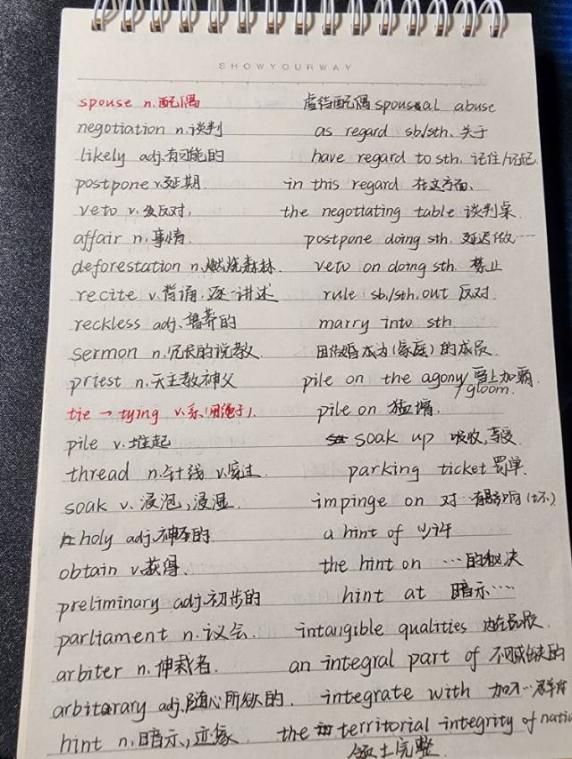 SHOWYOURWAY
spouse n.配偶 虐待配偶 spousal abuse
negotiation n.谈判 as regard sb/sth. 关于
likely adj.有可能的 have regard to sth. 记住/记起
postpone v.延期 in this regard 在这方面、
veto v. 反对, the negotiating table 谈判桌
affair n.事情 postpone doing sth. 延迟做…
deforestation n. 森林. veto on doing sth. 禁止
recite v.背诵.逐一讲述 rule sb/sth.out 反对.
reckless adj.鲁莽的 marry into sth.
sermon n.冗长的说教. 因结婚成为(家庭)的成员
priest n.天主教神父 pile on the agony/雪上加霜.
/gloom.
tie → tying v.系(用绳子). pile on 猛增.
pile v.堆起 soak up 吸收,享受
thread n.针线 v.穿过 parking ticket 罚单.
soak v.浸泡,浸湿 impinge on 对…有影响(坏)
holy adj.神圣的. a hint of 少许
obtain v.获得. the hint on …的秘诀
preliminary adj.初步的 hint at 暗示…
parliament n.议会. intangible qualities 内在品质.
arbiter n.仲裁者. an integral part of 不可或缺的
arbitrary adj.随心所欲的. integrate with 加入…
hint n.暗示,迹象. the territorial integrity of nati
领土完整